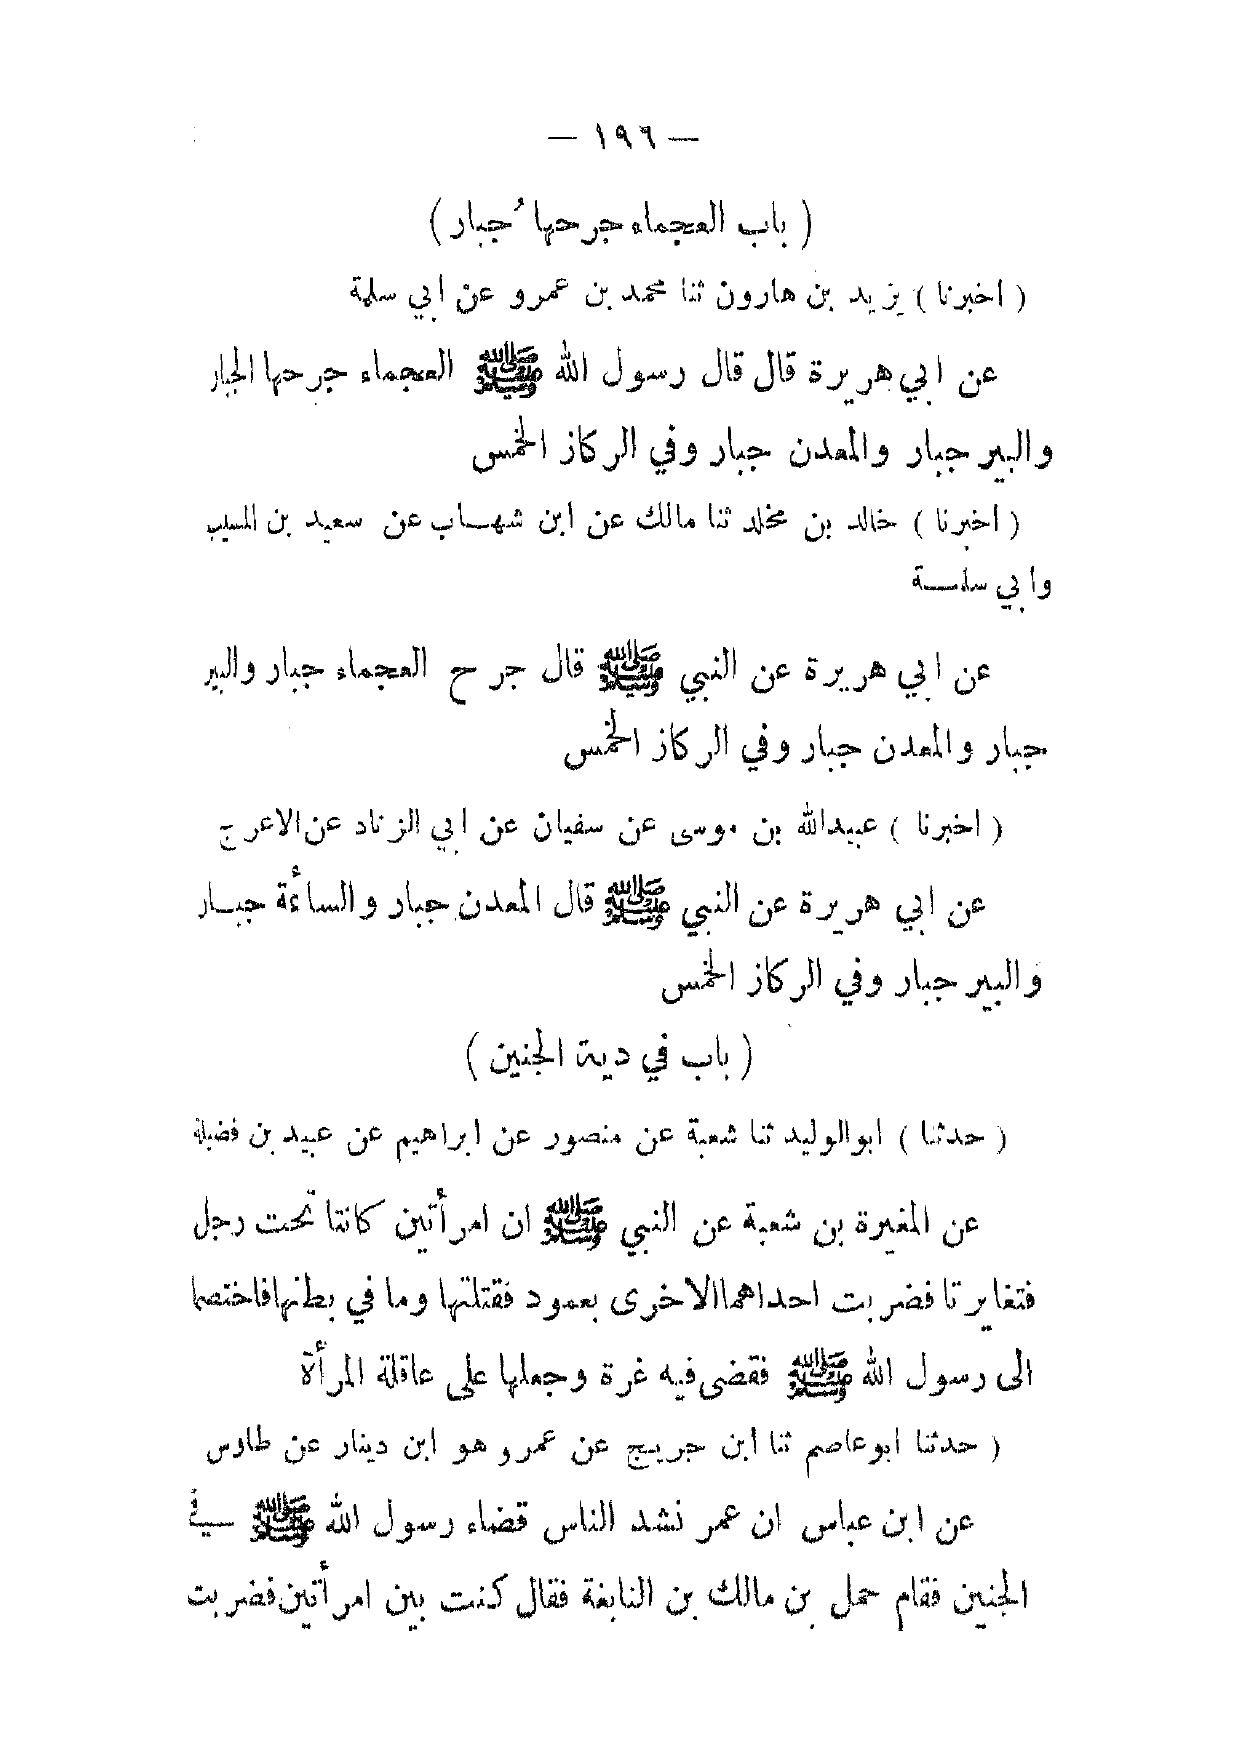 — ١٩٦ —
( باب العجماء جرحها ُجبار )
( اخبرنا ) يزيد بن هارون ثنا محمد بن عمرو عن ابي سلمة
عن ابي هريرة قال قال رسول الله ﷺ العجماء جرحها الجبار
والبير جبار والمعدن جبار وفي الركاز الخمس
( اخبرنا ) خالد بن مخلد ثنا مالك عن ابن شهـاب عن سعيد بن المسيب
وابي سلمـة
عن ابي هريرة عن النبي ﷺ قال جرح العجماء جبار والبير
جبار والمعدن جبار وفي الركاز الخمس
( اخبرنا ) عبيدالله بن موسى عن سفيان عن ابي الزناد عن الاعرج
عن ابي هريرة عن النبي ﷺ قال المعدن جبار والسائمة جبـار
والبير جبار وفي الركاز الخمس
( باب في دية الجنين )
( حدثنا ) ابوالوليد ثنا شعبة عن منصور عن ابراهيم عن عبيد بن فضيلة
عن المغيرة بن شعبة عن النبي ﷺ ان امرأتين كانتا تحت رجل
فتغايرتا فضربت احداهما الاخرى بعمود فقتلتها وما في بطنها فاختصما
الى رسول الله ﷺ فقضى فيه غرة وجعلها على عاقلة المرأة
( حدثنا ابوعاصم ثنا ابن جريج عن عمرو هو ابن دينار عن طاوس
عن ابن عباس ان عمر نشد الناس قضاء رسول الله ﷺ في
الجنين فقام حمل بن مالك بن النابغة فقال كنت بين امرأتين فضربت